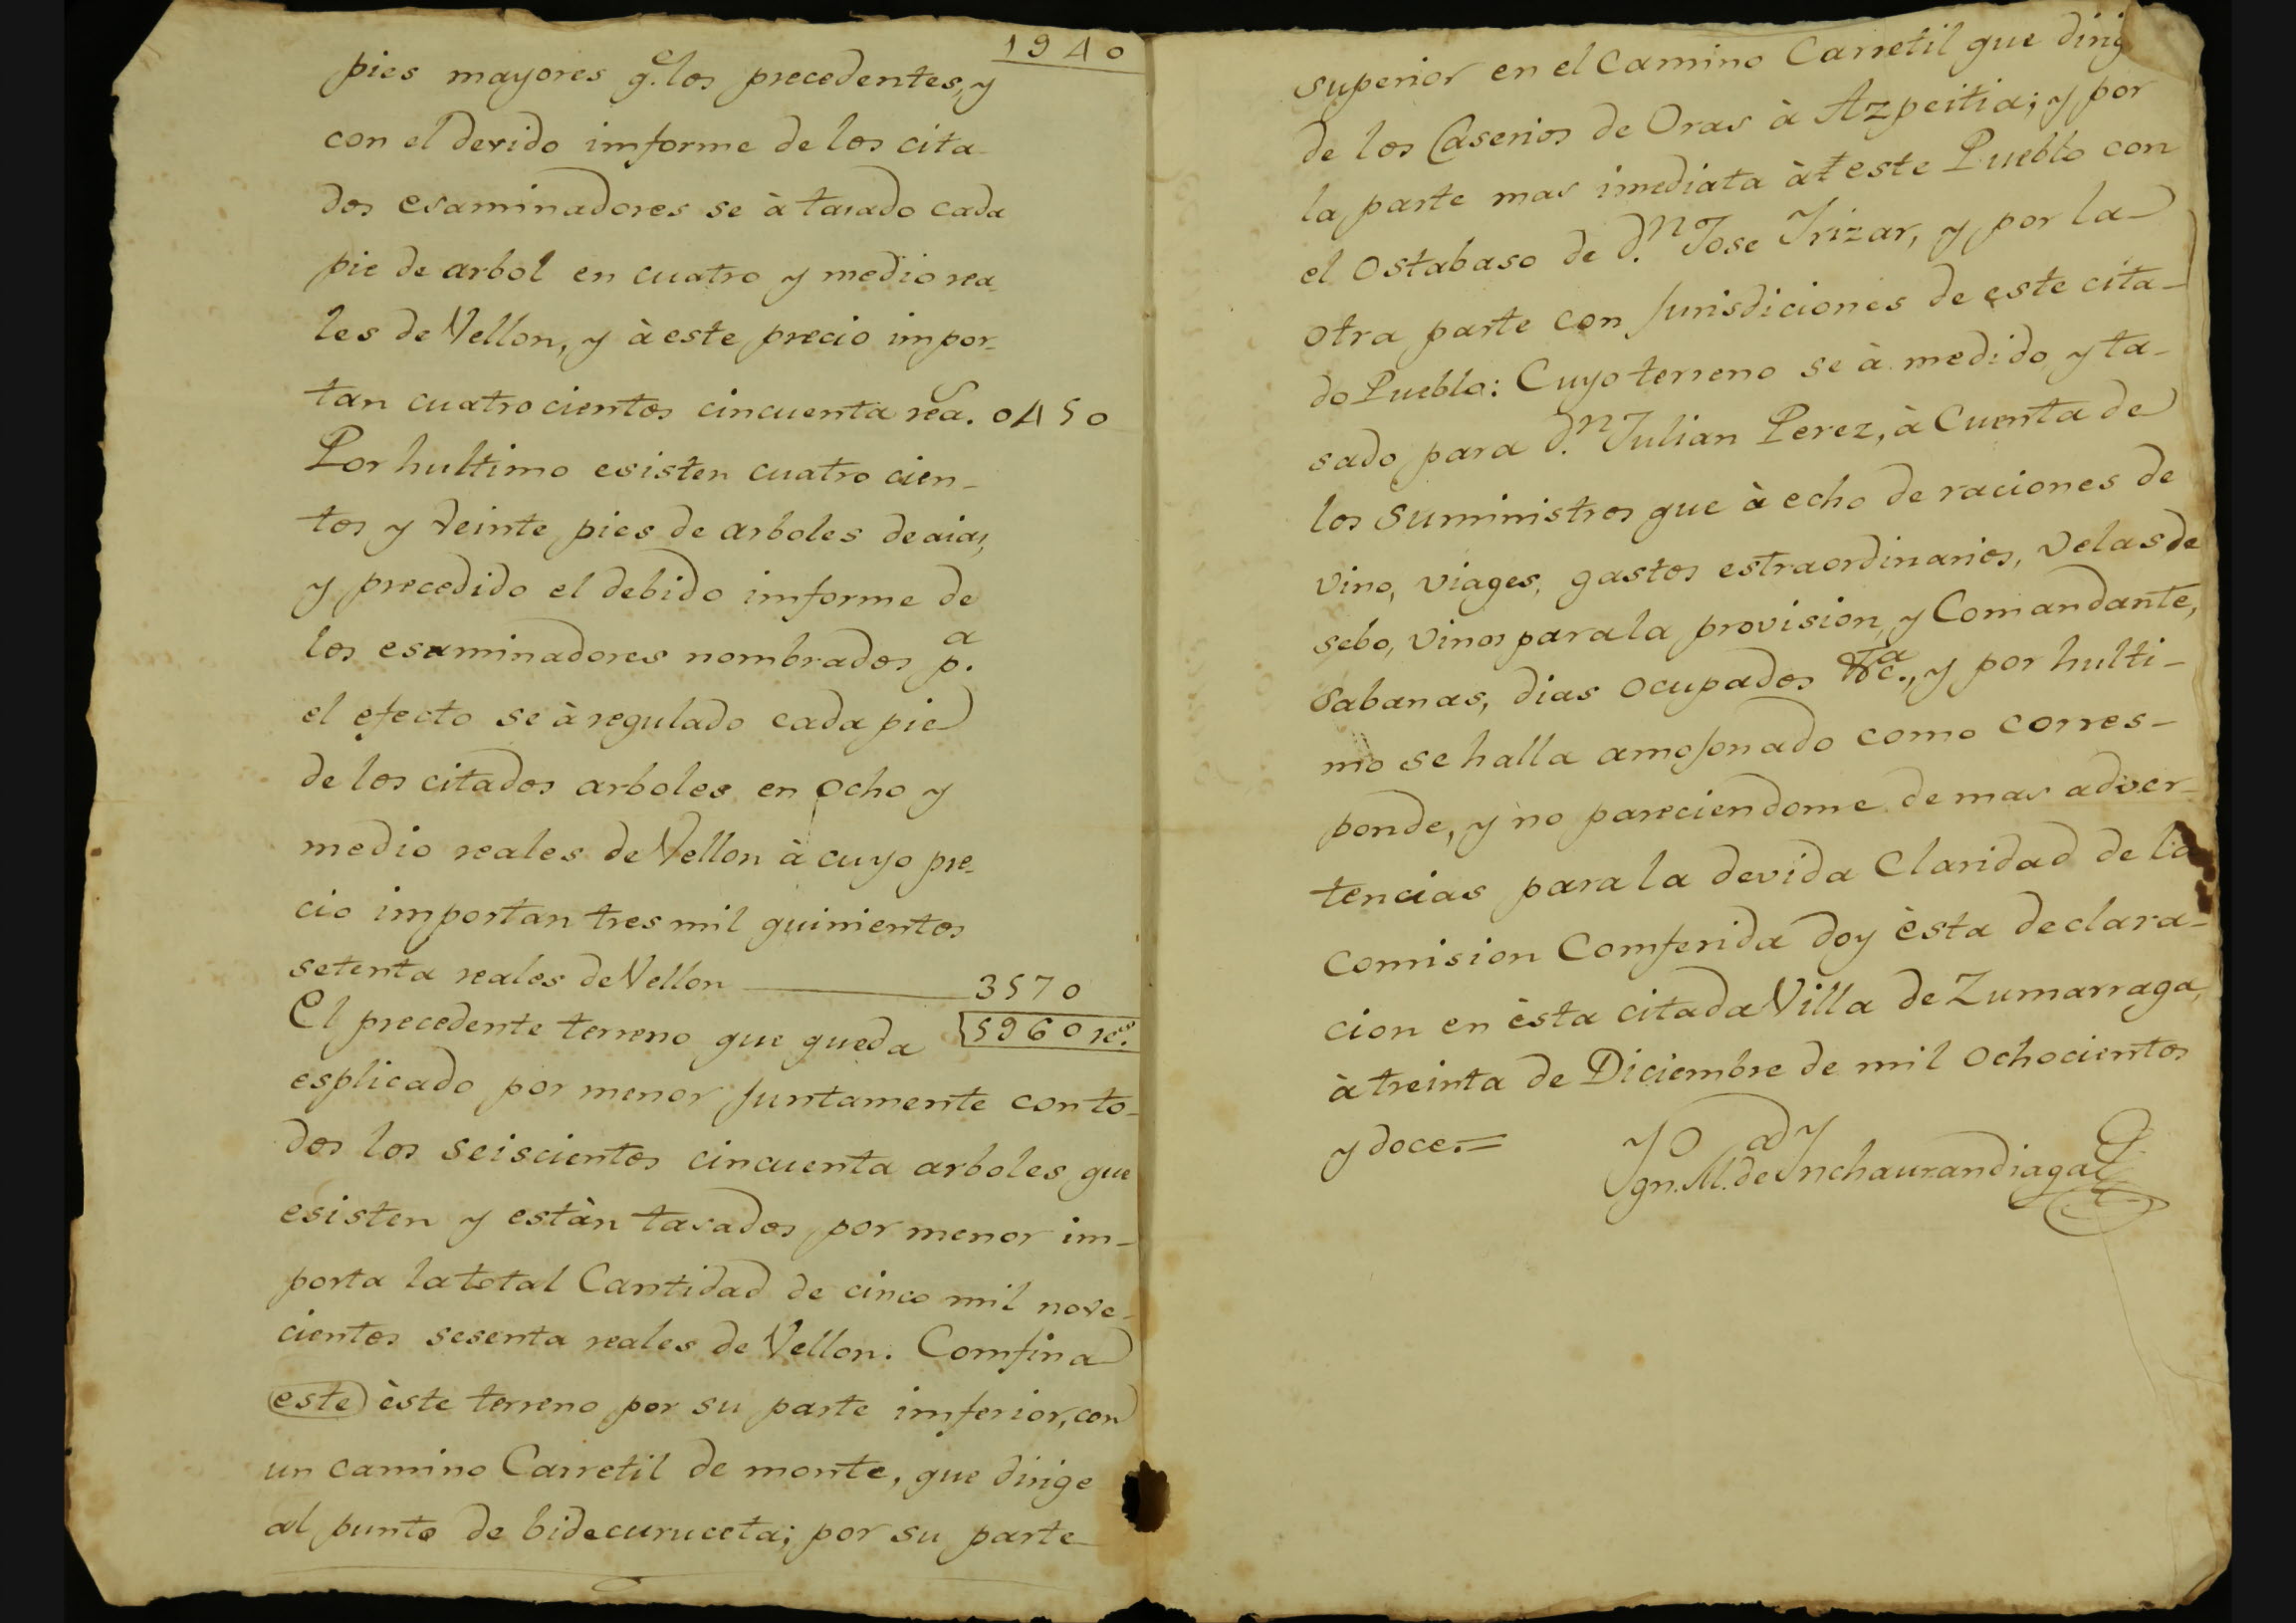 1940
pies mayores q.e los precedentes, y
con el devido imforme de los cita-
dos esaminadores se à tasado cada
pie de arbol en cuatro y medio rea-
les de Vellon, y à este precio impor-
tan cuatrocientos cincuenta rea.s 0450
Por hultimo esisten cuatro cien-
tos y veinte pies de arboles de aias,
y precedido el debido imforme de
los esaminadores nombrados p.a
el efecto se à regulado cada pie
de los citados arboles en ocho y
medio reales de Vellon à cuyo pre-
cio importan tres mil quinientos
setenta reales de Vellon 3570
El precedente terreno que queda 5960 re.s
esplicado por menor juntamente con to-
dos los seiscientos cincuenta arboles que
esisten y estàn tasados por menor im-
porta la total Cantidad de cinco mil nove-
cientos sesenta reales de Vellon. Comfina
este èste terreno por su parte imferior, con
un camino Carretil de monte, que dirige
al punto de bidecuruceta; por su parte
superior en el Camino Carretil que dirig
de los Caserios de Oras à Azpeitia; y por
la parte mas imediata àt este Pueblo con
el Ostabaso de d.n Jose Yrizar, y por la
otra parte con Jurisdiciones de este cita-
do Pueblo: Cuyo terreno se à medido y ta-
sado para d.n Julian Perez, à Cuenta de
los Suministros que à echo de raciones de
vino, viages, gastos estraordinarios, velas de
sebo, vinos para la provision y Comandante,
Sabanas, dias ocupados &c.a, y por hulti-
mo se halla amojonado como corres-
ponde, y no pareciendome de mas adver-
tencias para la devida Claridad de la
Comision Comferida doy èsta declara-
cion en èsta citada Villa de Zumarraga,
à treinta de Diciembre de mil ochocientos
y doce.=
Ygn.o M.a de Ynchaurandiaga